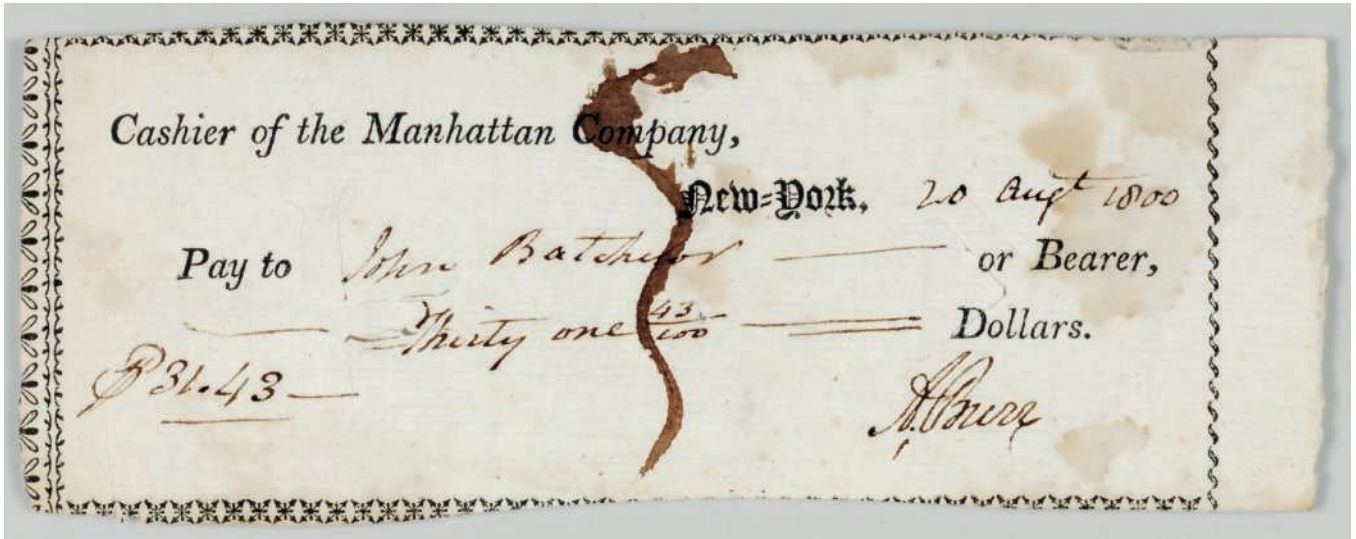 Cashier of the Manhattan Company,
New-York, 20 Augt 1800
Pay to John Batchelor or Bearer,
Thirty one 43/100 Dollars.
$31.43
A. Burr